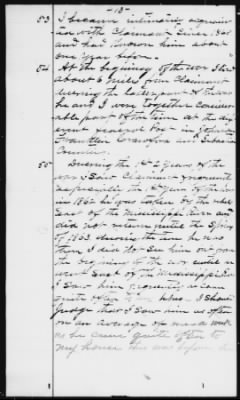 -13-
53 I became intimately acquain
ted with Claimant Since 1860
and had known him about
one year before.
54 At the beginning of the war I lived
about 6 miles from Claimant
during the latter part of
he and I were together consider
able part of the time at the
different
Franklin Crawford and Sebastian
Counties.
55 During the 1st 2 years of the
war I saw Claimant
especially the 1st year of the war
in 1862 he was taken by the
East of the Mississippi River and
did not return until the Spring
of 1863. during the time he was
there I did not see him but from
the beginning of the war until he
went East of the Mississippi River
I saw him frequently
quite often I should
judge that I saw him as often
on an average of once a week
as he came quite often to
my house this was before